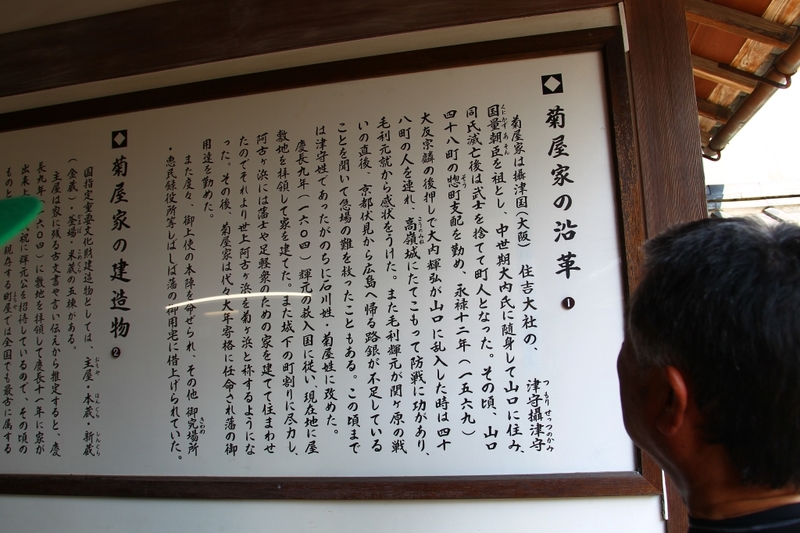 菊屋家の沿革 ❶
菊屋家は摂津国(大阪)住吉大社の、津守摂津守
国量朝臣を祖とし、中世期大内氏に随身して山口に住み、
同氏滅亡後は武士を捨てて町人となった。その頃、山口
四十八町の惣町支配を勤め、永禄十二年(一五六九)
大友宗麟の後押しで大内輝弘が山口に乱入した時は四十
八町の人を連れ、高嶺城にたてこもって防戦に功があり、
毛利元就から感状をうけた。また毛利輝元が関ヶ原の戦
いの直後、京都伏見から広島へ帰る路銀が不足している
ことを聞いて急場の難を救ったこともある。この頃まで
は津守姓であったがのちに石川姓・菊屋姓に改めた。
慶長九年(一六〇四)輝元の萩入国に従い、現在地に屋
敷地を拝領して家を建てた。また城下の町割りに尽力し、
阿古ヶ浜には藩士や足軽衆のための家を建てて住まわせ
たのでそれより世上阿古ヶ浜を菊ヶ浜と称するようにな
った。その後、菊屋家は代々大年寄格に任命され藩の御
用達を勤めた。
また度々、御上使の本陣を命ぜられ、その他 御究場所
・恵民録役所等しばしば藩の御用宅に借上げられていた。
菊屋家の建造物 ❷
国指定重要文化財建造物としては、主屋・本蔵・新蔵
(金蔵)・釜場・米蔵の五棟がある。
主屋は家に残る古文書や言い伝えから推定すると、慶
長九年 六〇四)に敷地を拝領して慶長十一年に家が
出来上 祝に輝元公を招待しているので、その頃の
ものと 現存する町屋では全国でも最古に属する